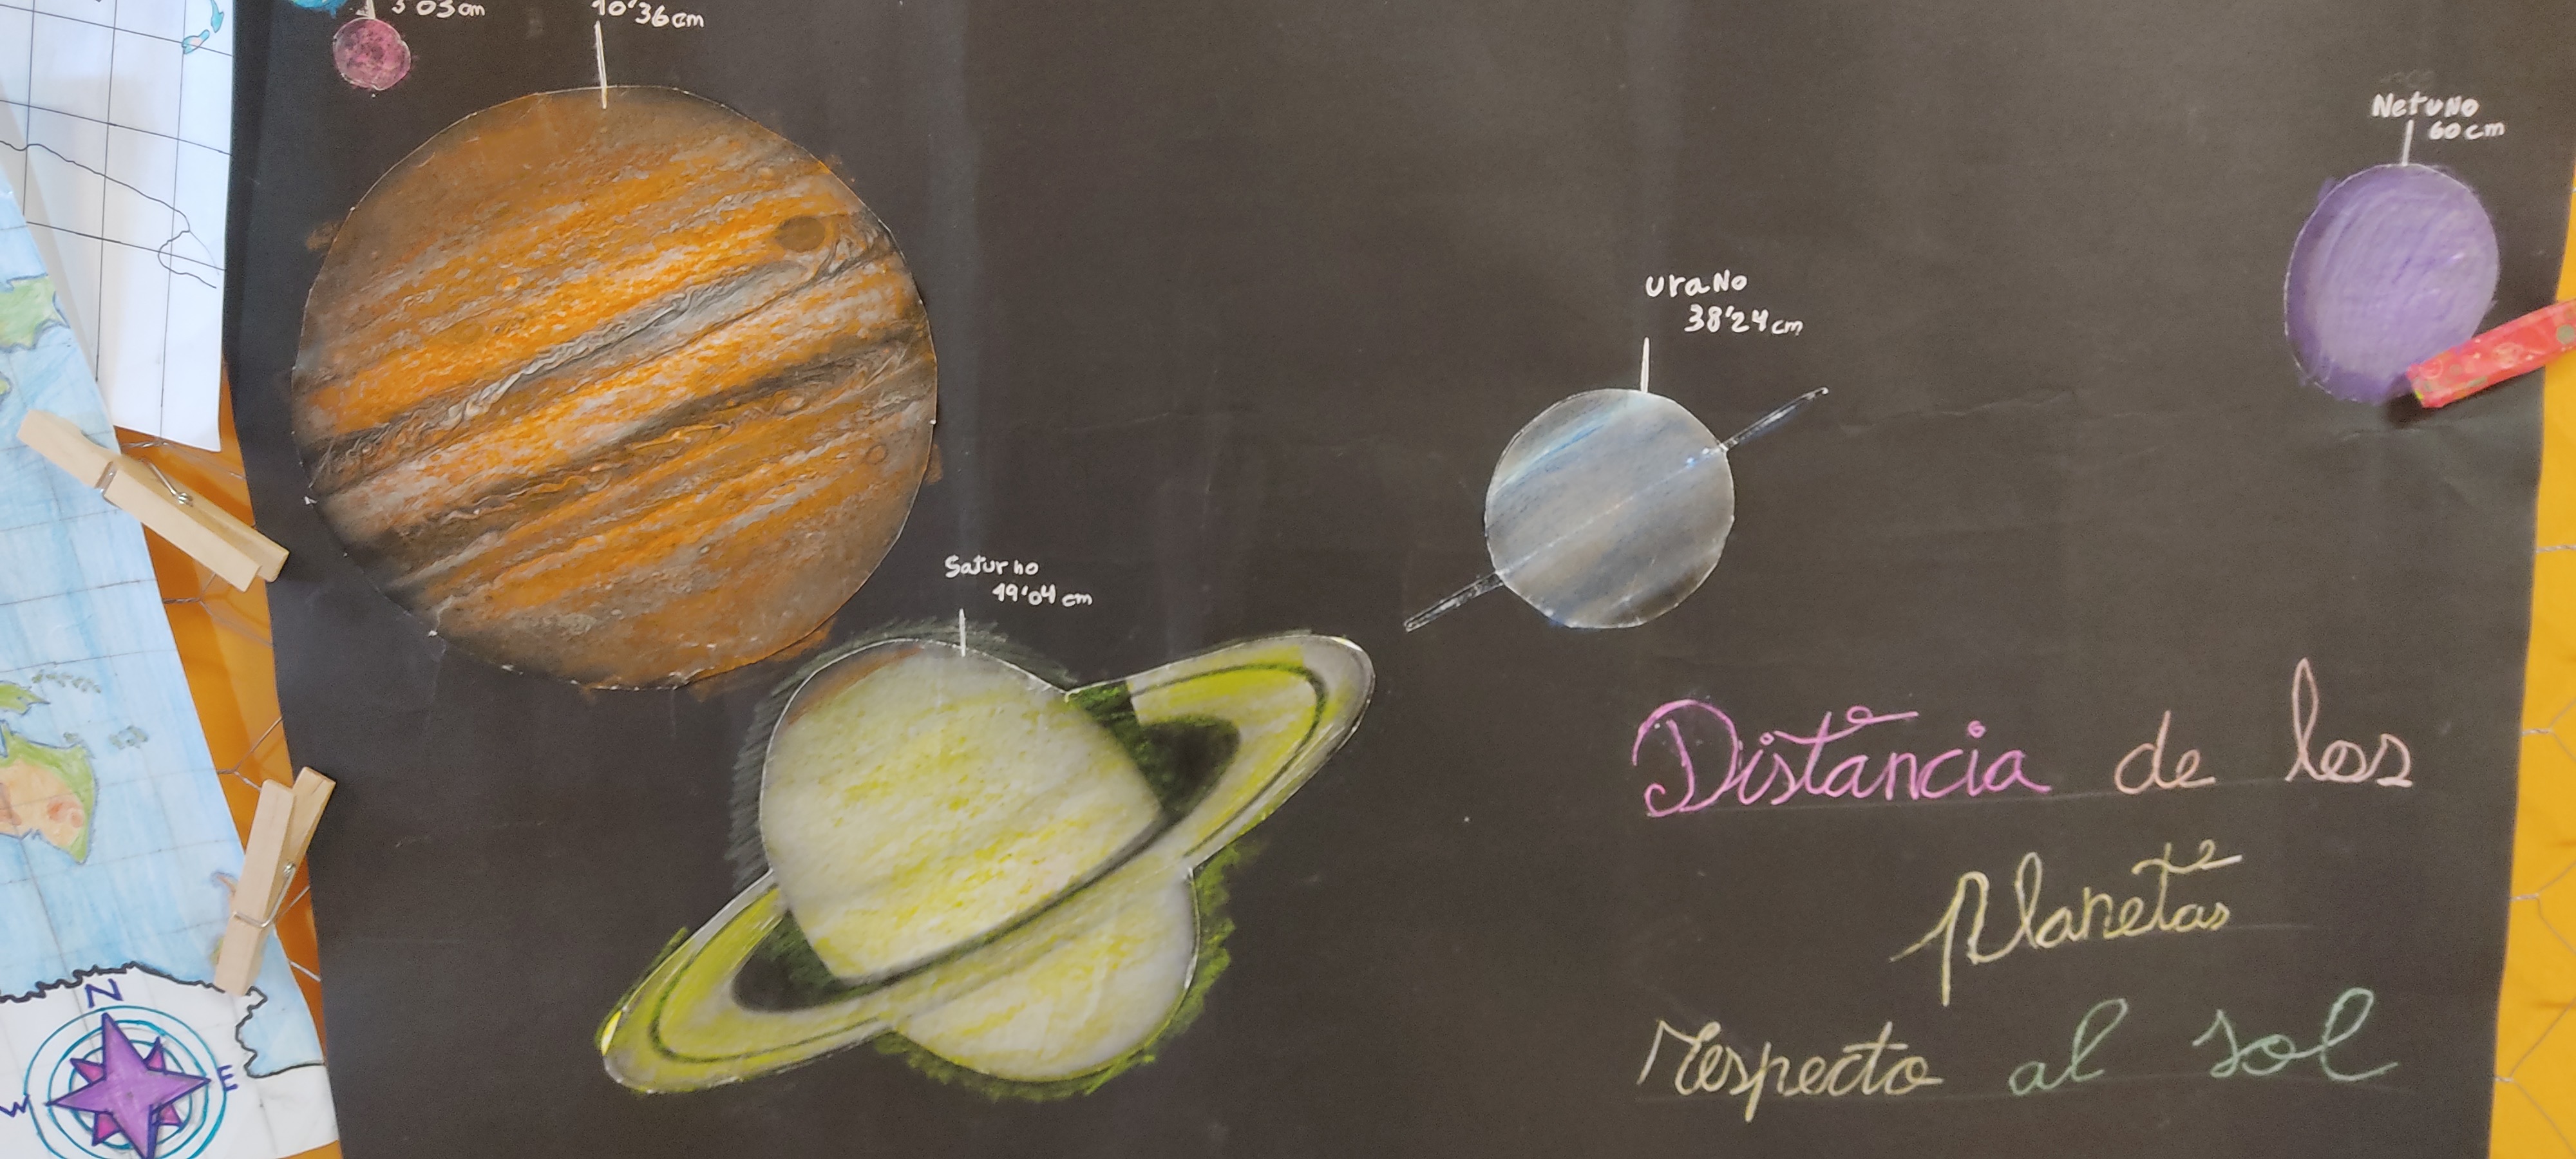 3'03cm
10'36cm
Netuno
60cm
uraNo
38'24cm
Saturno
19'04cm
Distancia de los
planetas
respecto al sol
N
E
W